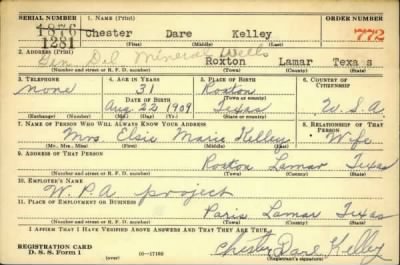 SERIAL NUMBER 1. NAME (Print) ORDER NUMBER
1876 Chester Dare Kelley 772
1281 (First) (Middle) (Last)
2. ADDRESS (Print)
Gen Del Mineral Wells Roxton Lamar Texas
(Number and street or R. F. D. number) (Town) (County) (State)
3. TELEPHONE 4. AGE IN YEARS 5. PLACE OF BIRTH 6. COUNTRY OF CITIZENSHIP
none 31 Roxton
DATE OF BIRTH (Town or county)
Aug. 22 1909 Texas U.S.A.
(Exchange) (Number) (Mo.) (Day) (Yr.) (State or country)
7. NAME OF PERSON WHO WILL ALWAYS KNOW YOUR ADDRESS 8. RELATIONSHIP OF THAT PERSON
Mrs. Elsie Marie Kelley Wife
(Mr., Mrs., Miss) (First) (Middle) (Last)
9. ADDRESS OF THAT PERSON
Roxton Lamar Texas
(Number and street or R. F. D. number) (Town) (County) (State)
10. EMPLOYER'S NAME
W.P.A. project
11. PLACE OF EMPLOYMENT OR BUSINESS
Paris Lamar Texas
(Number and street or R. F. D. number) (Town) (County) (State)
I AFFIRM THAT I HAVE VERIFIED ABOVE ANSWERS AND THAT THEY ARE TRUE.
REGISTRATION CARD
D. S. S. Form 1 (over) 16—17105 Chester Dare Kelley
(Registrant's signature)